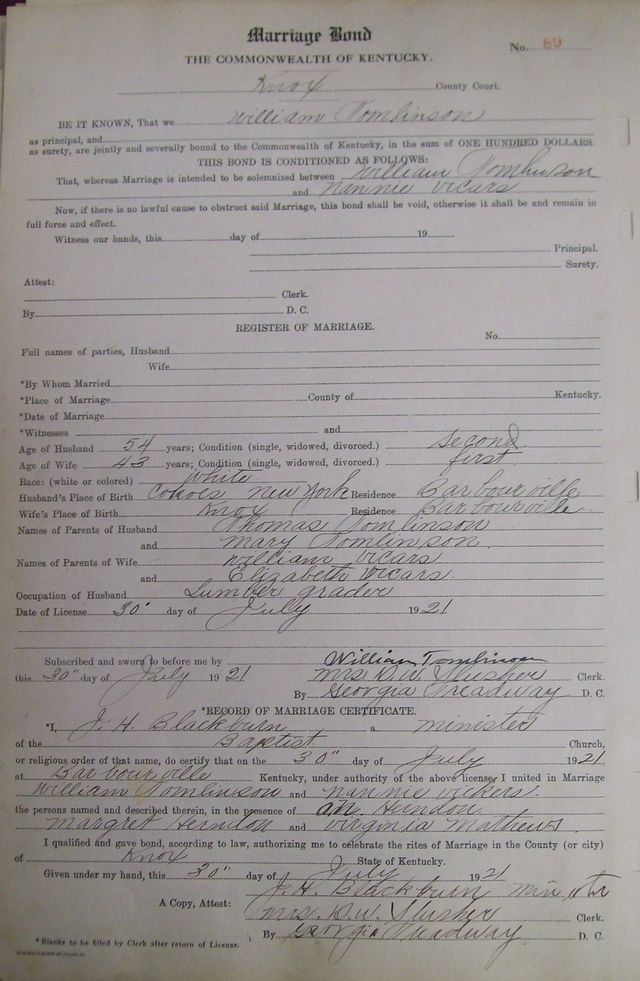 Marriage Bond
No. 89
THE COMMONWEALTH OF KENTUCKY.
Knox County Court.
BE IT KNOWN, That we William Tomlinson
as principal, and
as surety, are jointly and severally bound to the Commonwealth of Kentucky, in the sum of ONE HUNDRED DOLLARS.
THIS BOND IS CONDITIONED AS FOLLOWS:
That, whereas Marriage is intended to be solemnized between William Tomlinson
and Nannie Vicars
Now, if there is no lawful cause to obstruct said Marriage, this bond shall be void, otherwise it shall be and remain in
full force and effect.
Witness our hands, this day of 19
Principal.
Surety.
Attest:
Clerk.
By D. C.
REGISTER OF MARRIAGE.
No.
Full names of parties, Husband
Wife
*By Whom Married
*Place of Marriage County of Kentucky.
*Date of Marriage
*Witnesses and
Age of Husband 54 years; Condition (single, widowed, divorced.) Second
Age of Wife 43 years; Condition (single, widowed, divorced.) first
Race: (white or colored) white
Husband's Place of Birth Cohoes, New York Residence Barbourville
Wife's Place of Birth Knox Residence Barbourville
Names of Parents of Husband Thomas Tomlinson
and Mary Tomlinson
Names of Parents of Wife William Vicars
and Elizabeth Vicars
Occupation of Husband Lumber grader
Date of License 30" day of July 1921
Subscribed and sworn to before me by William Tomlinson
this 30" day of July 1921 Mrs. D. W. Slusher Clerk.
By Georgia Treadway D. C.
*RECORD OF MARRIAGE CERTIFICATE.
*I, J. H. Blackburn a minister
of the Baptist Church,
or religious order of that name, do certify that on the 30" day of July 1921
at Barbourville Kentucky, under authority of the above license, I united in Marriage
William Tomlinson and Nannie Vickers
the persons named and described therein, in the presence of Herndon
Margret Herndon and Virginia Mathews
I qualified and gave bond, according to law, authorizing me to celebrate the rites of Marriage in the County (or city)
of Knox State of Kentucky.
Given under my hand, this 30" day of July 1921
J. H. Blackburn minister
A Copy, Attest: Mrs. D. W. Slusher Clerk.
By Georgia Treadway D. C.
*Blanks to be filled by Clerk after return of License.